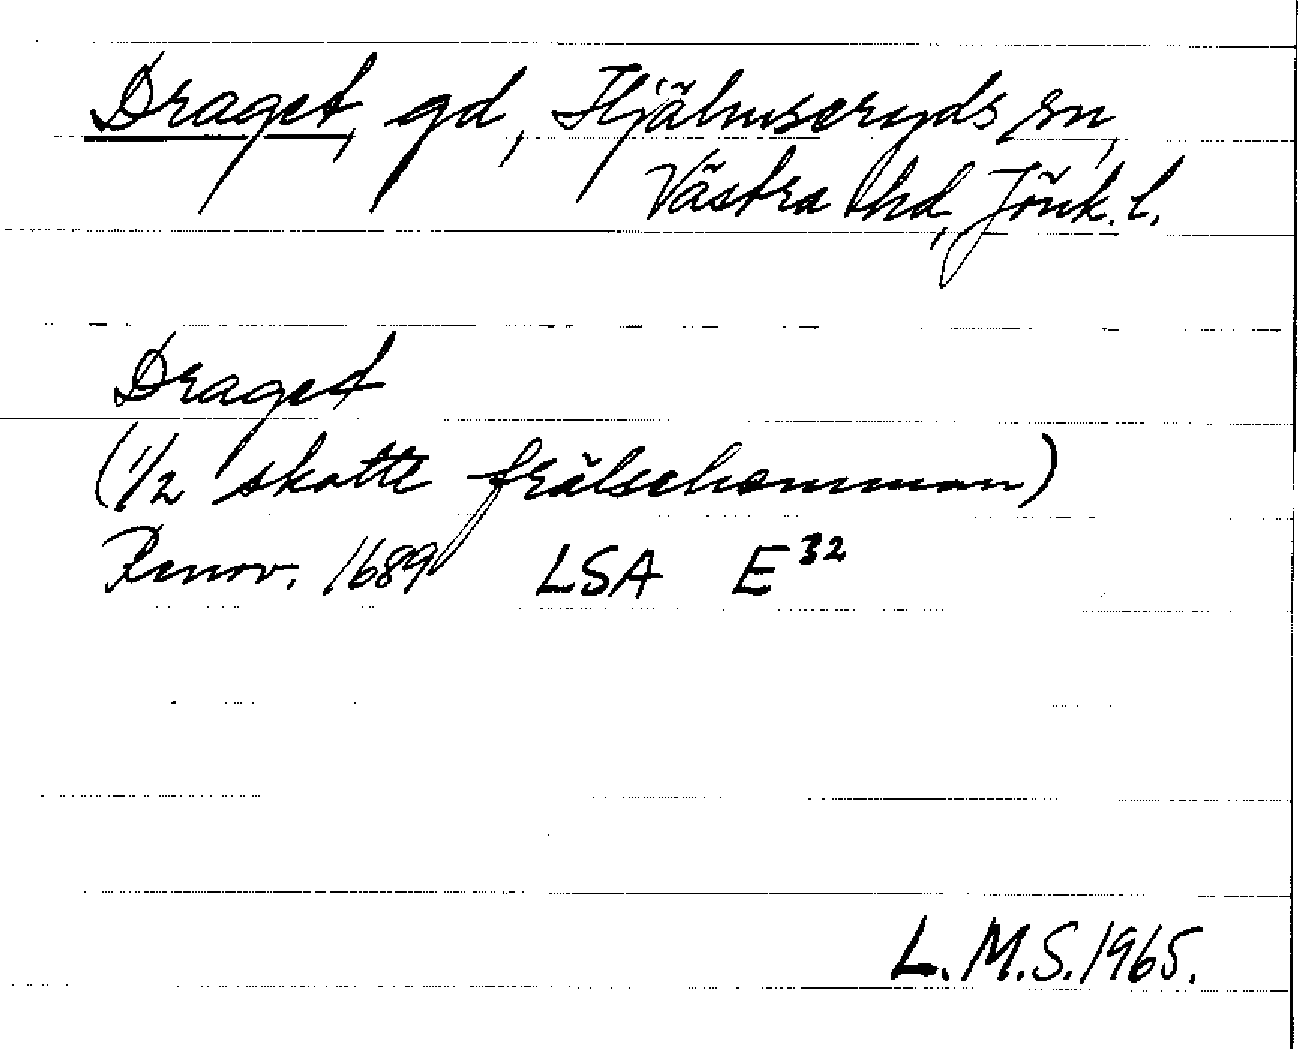 Draget, gd, Hjälmseryds sn,
Västra hd, Jönk. l.
Draget
(1/2 skatte frälsehemman)
Renov. 1689 LSA E³²
L. M. S. 1965.